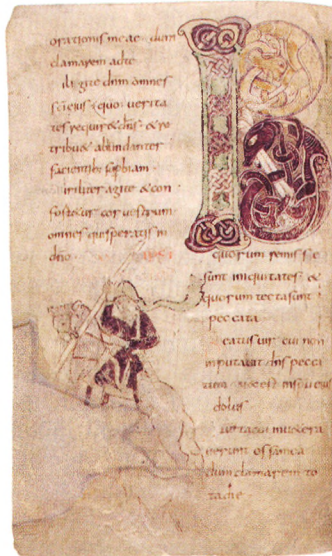 orationis meae dum
clamarem ad te
iligite dnm omnes
sci eius uerita
tes requir& dns & re
tribu& abundanter
facientib; supbiam
iriliter agite & con
fort&ur cor uestrum
omnes qui speratis in
dno
B
quorum remisse
sunt iniquitates &
quorum tecta sunt
peccata
eatus uir cui non
imputauit dns pecca
tum nec est in eius
dolus
tacui inuetera
uerunt ossa mea
dum clamarem to
ta die